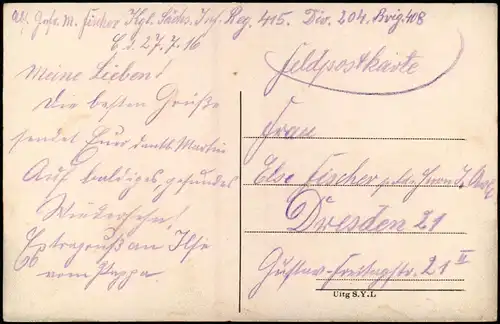 Gefr. M. Fischer Kgl. Sächs. Inf. Reg. 415. Div. 204. Brig. 408
d. 27.7.16
Meine Lieben!
Die besten Grüße
sendet Euer dankb. Martin
Auf baldiges, gesundes
Wiedersehn!
Extragruß an Ilse
vom Pappa.
Feldpostkarte
Frau
Else Fischer Herrn
Dresden 21
Gustav-Freitagstr. 21 II
Uitg S.Y.L